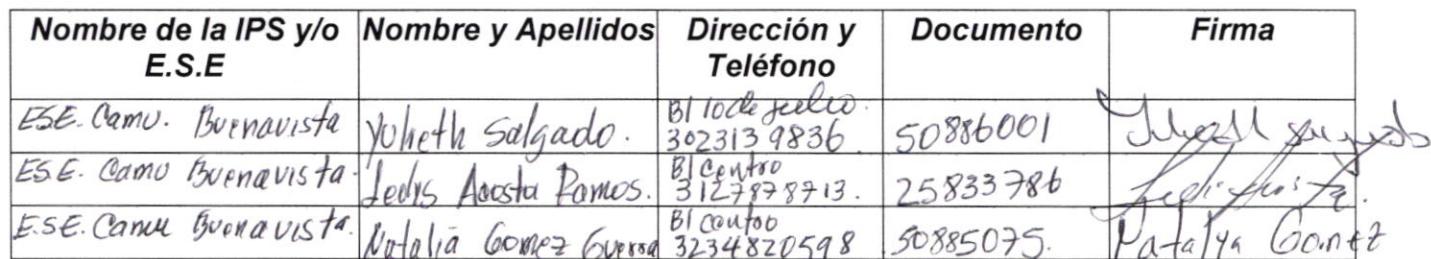 Nombre de la IPS y/o E.S.E Nombre y Apellidos Dirección y Teléfono Documento Firma
ESE. Camu. Buenavista Yulieth Salgado. B/ 10 de julio. 3023139836 50886001
ESE. Camu Buenavista. Ledys Acosta Ramos. B/ Centro 3127878713. 25833786
E.S.E. Camu Buenavista. Natalia Gomez Guerra B/ centro 3234820598 50885075. Natalya Gomez